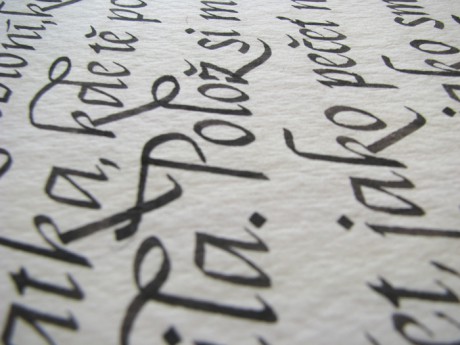 atka, kde tě po
la. Polož si m
jako pečeť n
jako sm